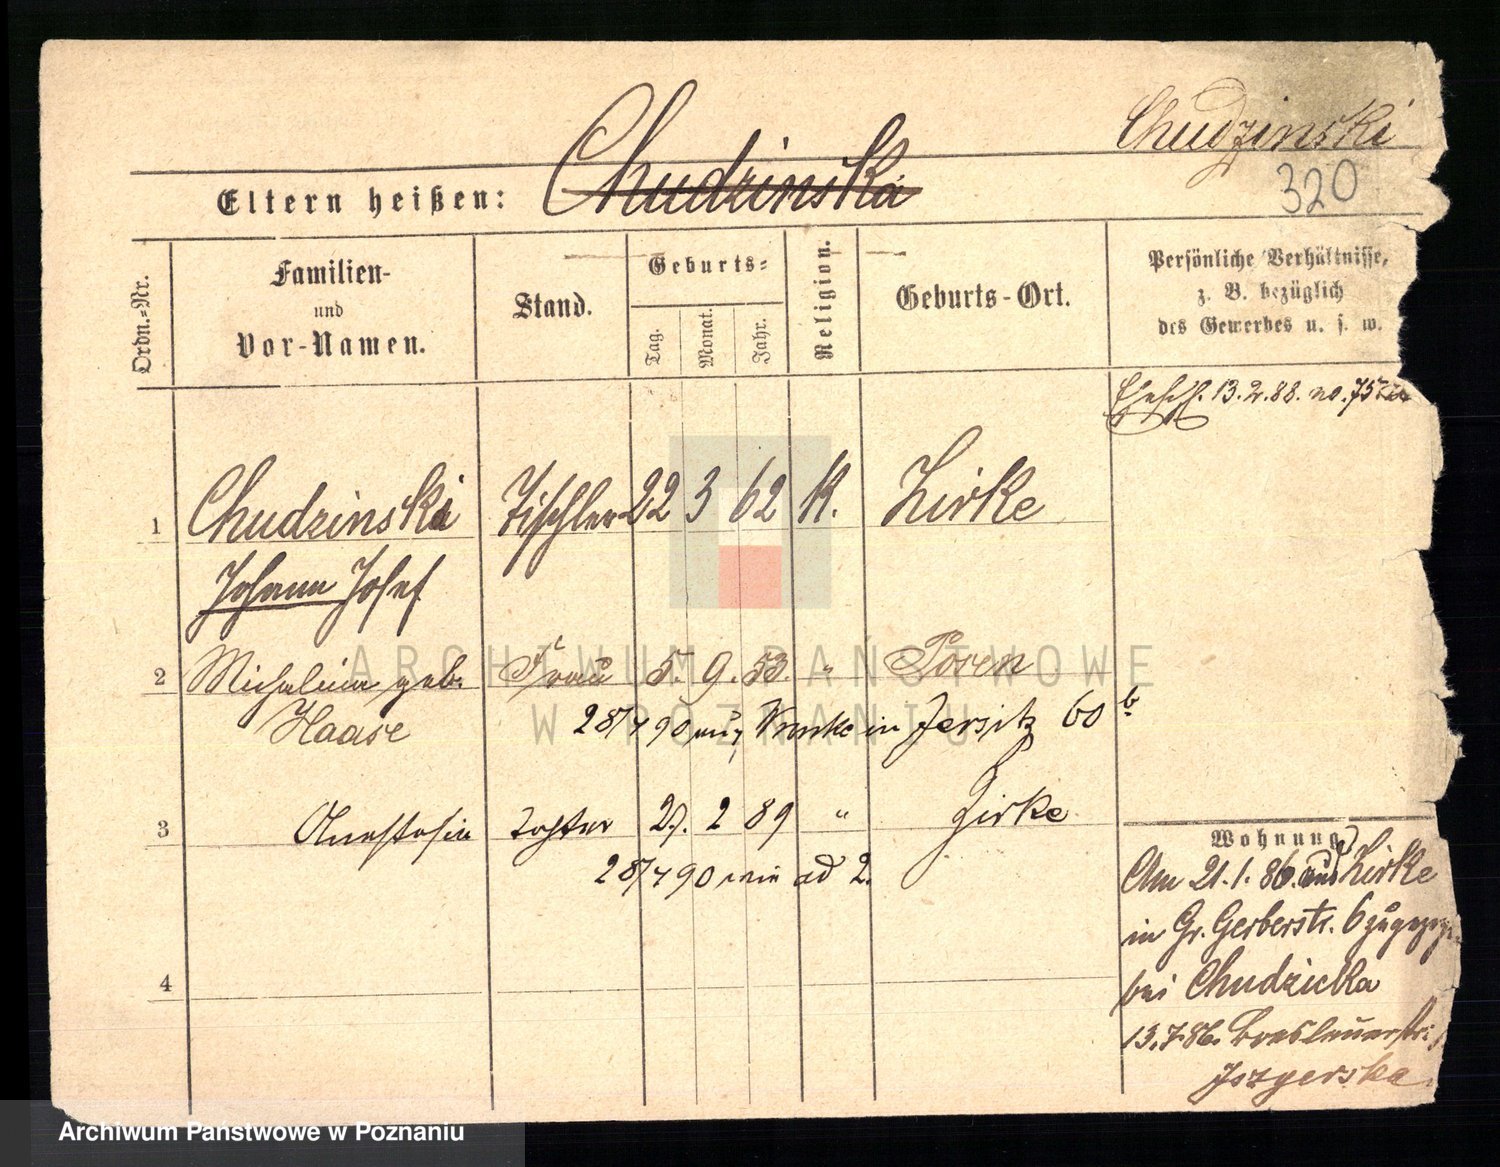 Chudzinski
320
Eltern heißen: Chudzinska
Ordn.-Nr.
Familien-
und
Vor-Namen.
Stand.
Geburts-
Tag.
Monat.
Jahr.
Religion.
Geburts-Ort.
Persönliche Verhältnisse,
z. B. bezüglich
des Gewerbes u. s. w.
13.2.88. no. 75
1 Chudzinski Tischler 22 3 62 K. Zirke
Johann Josef
2 Michalina geb. Frau 5. 9. 53. " Posen
Haase
28/7 90 in Jersitz 60 b
3 Anastasia Tochter 27. 2 89 " Zirke
28/7 90 wie ad 2.
4
Wohnung
Am 21.1.86. aus Zirke
in Gr. Gerberstr. 6 zugezogen
bei Chudzicka
13.7.86. Breslauerstr.
ARCHIWUM PAŃSTWOWE
W POZNANIU
Archiwum Państwowe w Poznaniu